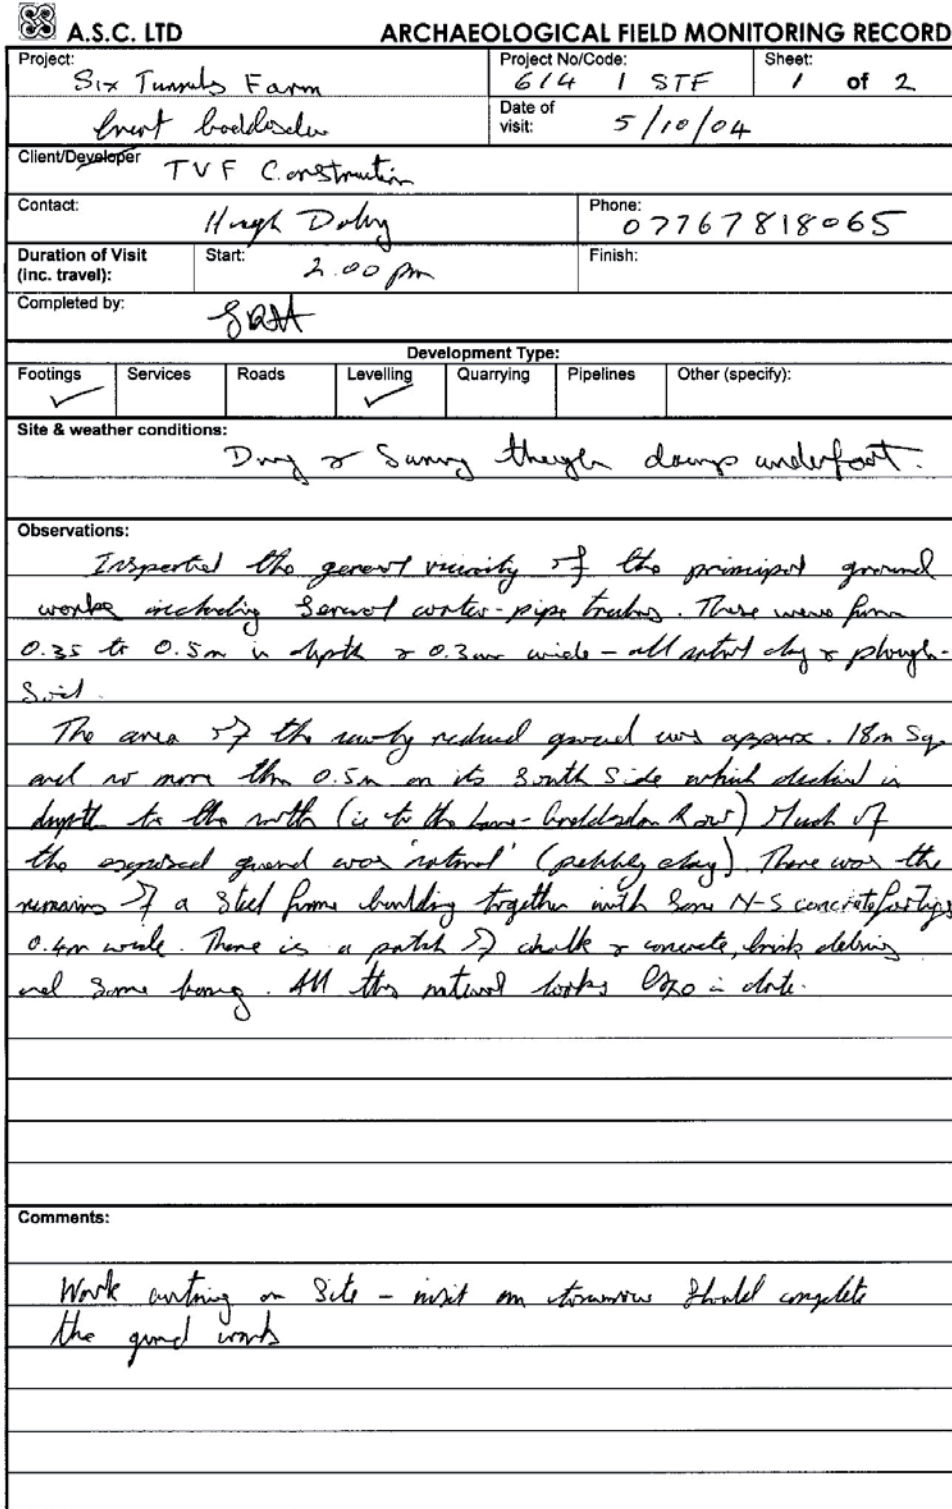 A.S.C. LTD ARCHAEOLOGICAL FIELD MONITORING RECORD
Project: Six Tunnels Farm
Project No/Code: 614 / STF
Sheet: 1 of 2
Great Gaddesden
Date of visit: 5/10/04
Client/Developer TVF Construction
Contact: Hugh
Phone: 07767818065
Duration of Visit (inc. travel):
Start: 2.00 pm
Finish:
Completed by:
Development Type:
Footings ✓ Services Roads Levelling ✓ Quarrying Pipelines Other (specify):
Site & weather conditions:
Dry & Sunny though damp underfoot.
Observations:
Inspected the general vicinity of the principal ground
works including several water-pipe trenches. These were from
0.35 to 0.5m in depth & 0.3m wide - all natural clay & plough-
Soil.
The area of the newly reduced ground was approx. 18m Sq.
and no more than 0.5m on its South Side which declined in
depth to the north (ie to the Lane - Gaddesden Row) Much of
the exposed ground was 'natural' (pebbly clay). There was the
remains of a Steel frame building together with Some N-S concrete footings
0.4m wide. There is a patch of chalk & concrete, brick debris
and Some. All this material looks in date.
Comments:
Work on Site - visit on tomorrow Should complete
the ground works